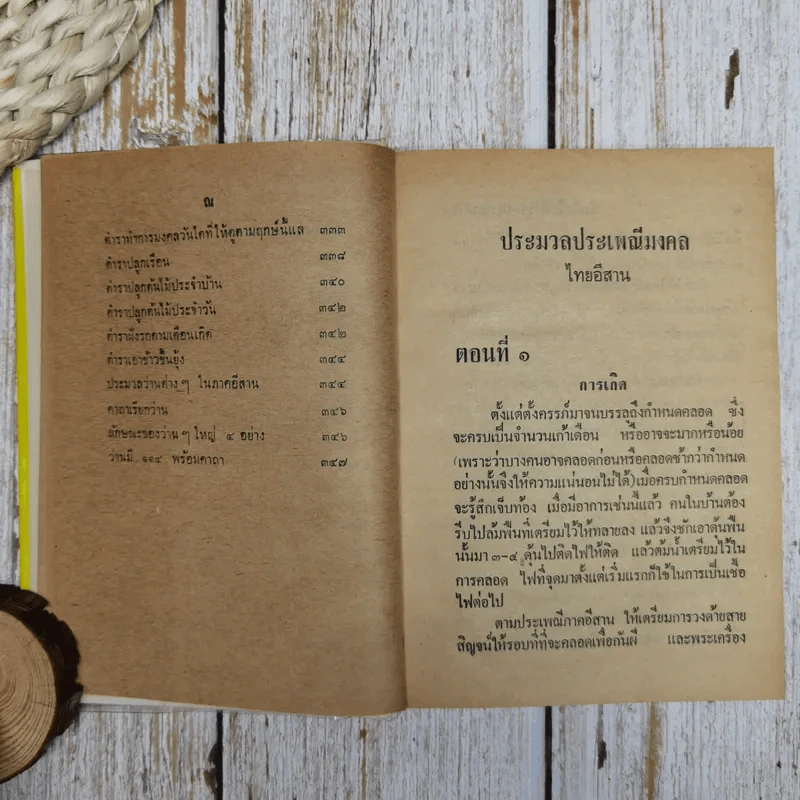 ณ
ตำราทำการมงคลวันใดที่ให้ดูตามฤกษ์นี้แล ๓๓๓
ตำราปลูกเรือน ๓๓๘
ตำราปลูกต้นไม้ประจำบ้าน ๓๔๐
ตำราปลูกต้นไม้ประจำวัน ๓๔๒
ตำราฝังรกตามเดือนเกิด ๓๔๒
ตำราเอาข้าวขึ้นยุ้ง ๓๔๔
ประมวลว่านต่าง ๆ ในภาคอีสาน ๓๔๔
คาถาเรียกว่าน ๓๔๖
ลักษณะของว่าน ๆ ใหญ่ ๔ อย่าง ๓๔๖
ว่านมี ๑๑๔ พร้อมคาถา ๓๔๗
ประมวลประเพณีมงคล
ไทยอีสาน
ตอนที่ ๑
การเกิด
ตั้งแต่ตั้งครรภ์มาจนบรรลุถึงกำหนดคลอด ซึ่ง
จะครบเป็นจำนวนเก้าเดือน หรืออาจจะมากหรือน้อย
(เพราะว่าบางคนอาจคลอดก่อนหรือคลอดช้ากว่ากำหนด
อย่างนั้นจึงให้ความแน่นอนไม่ได้)เมื่อครบกำหนดคลอด
จะรู้สึกเจ็บท้อง เมื่อมีอาการเช่นนี้แล้ว คนในบ้านต้อง
รีบไปล้มฟืนที่เตรียมไว้ให้ทลายลง แล้วจึงชักเอาดุ้นฟืน
นั้นมา ๓-๔ ดุ้นไปติดไฟให้ติด แล้วต้มน้ำเตรียมไว้ใน
การคลอด ไฟที่จุดมาตั้งแต่เริ่มแรกก็ใช้ในการเป็นเชื้อ
ไฟต่อไป
ตามประเพณีภาคอีสาน ให้เตรียมการวงด้ายสาย
สิญจน์ให้รอบที่ที่จะคลอดเพื่อกันผี และพระเครื่อง